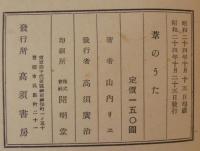 昭和二十四年十月十五日印刷
昭和二十四年十月二十五日發行
草のうた
定價一五〇圓
著者 山内リエ
發行者 高須廣治
印刷所 株式會社 開明堂
發行所 高須書房